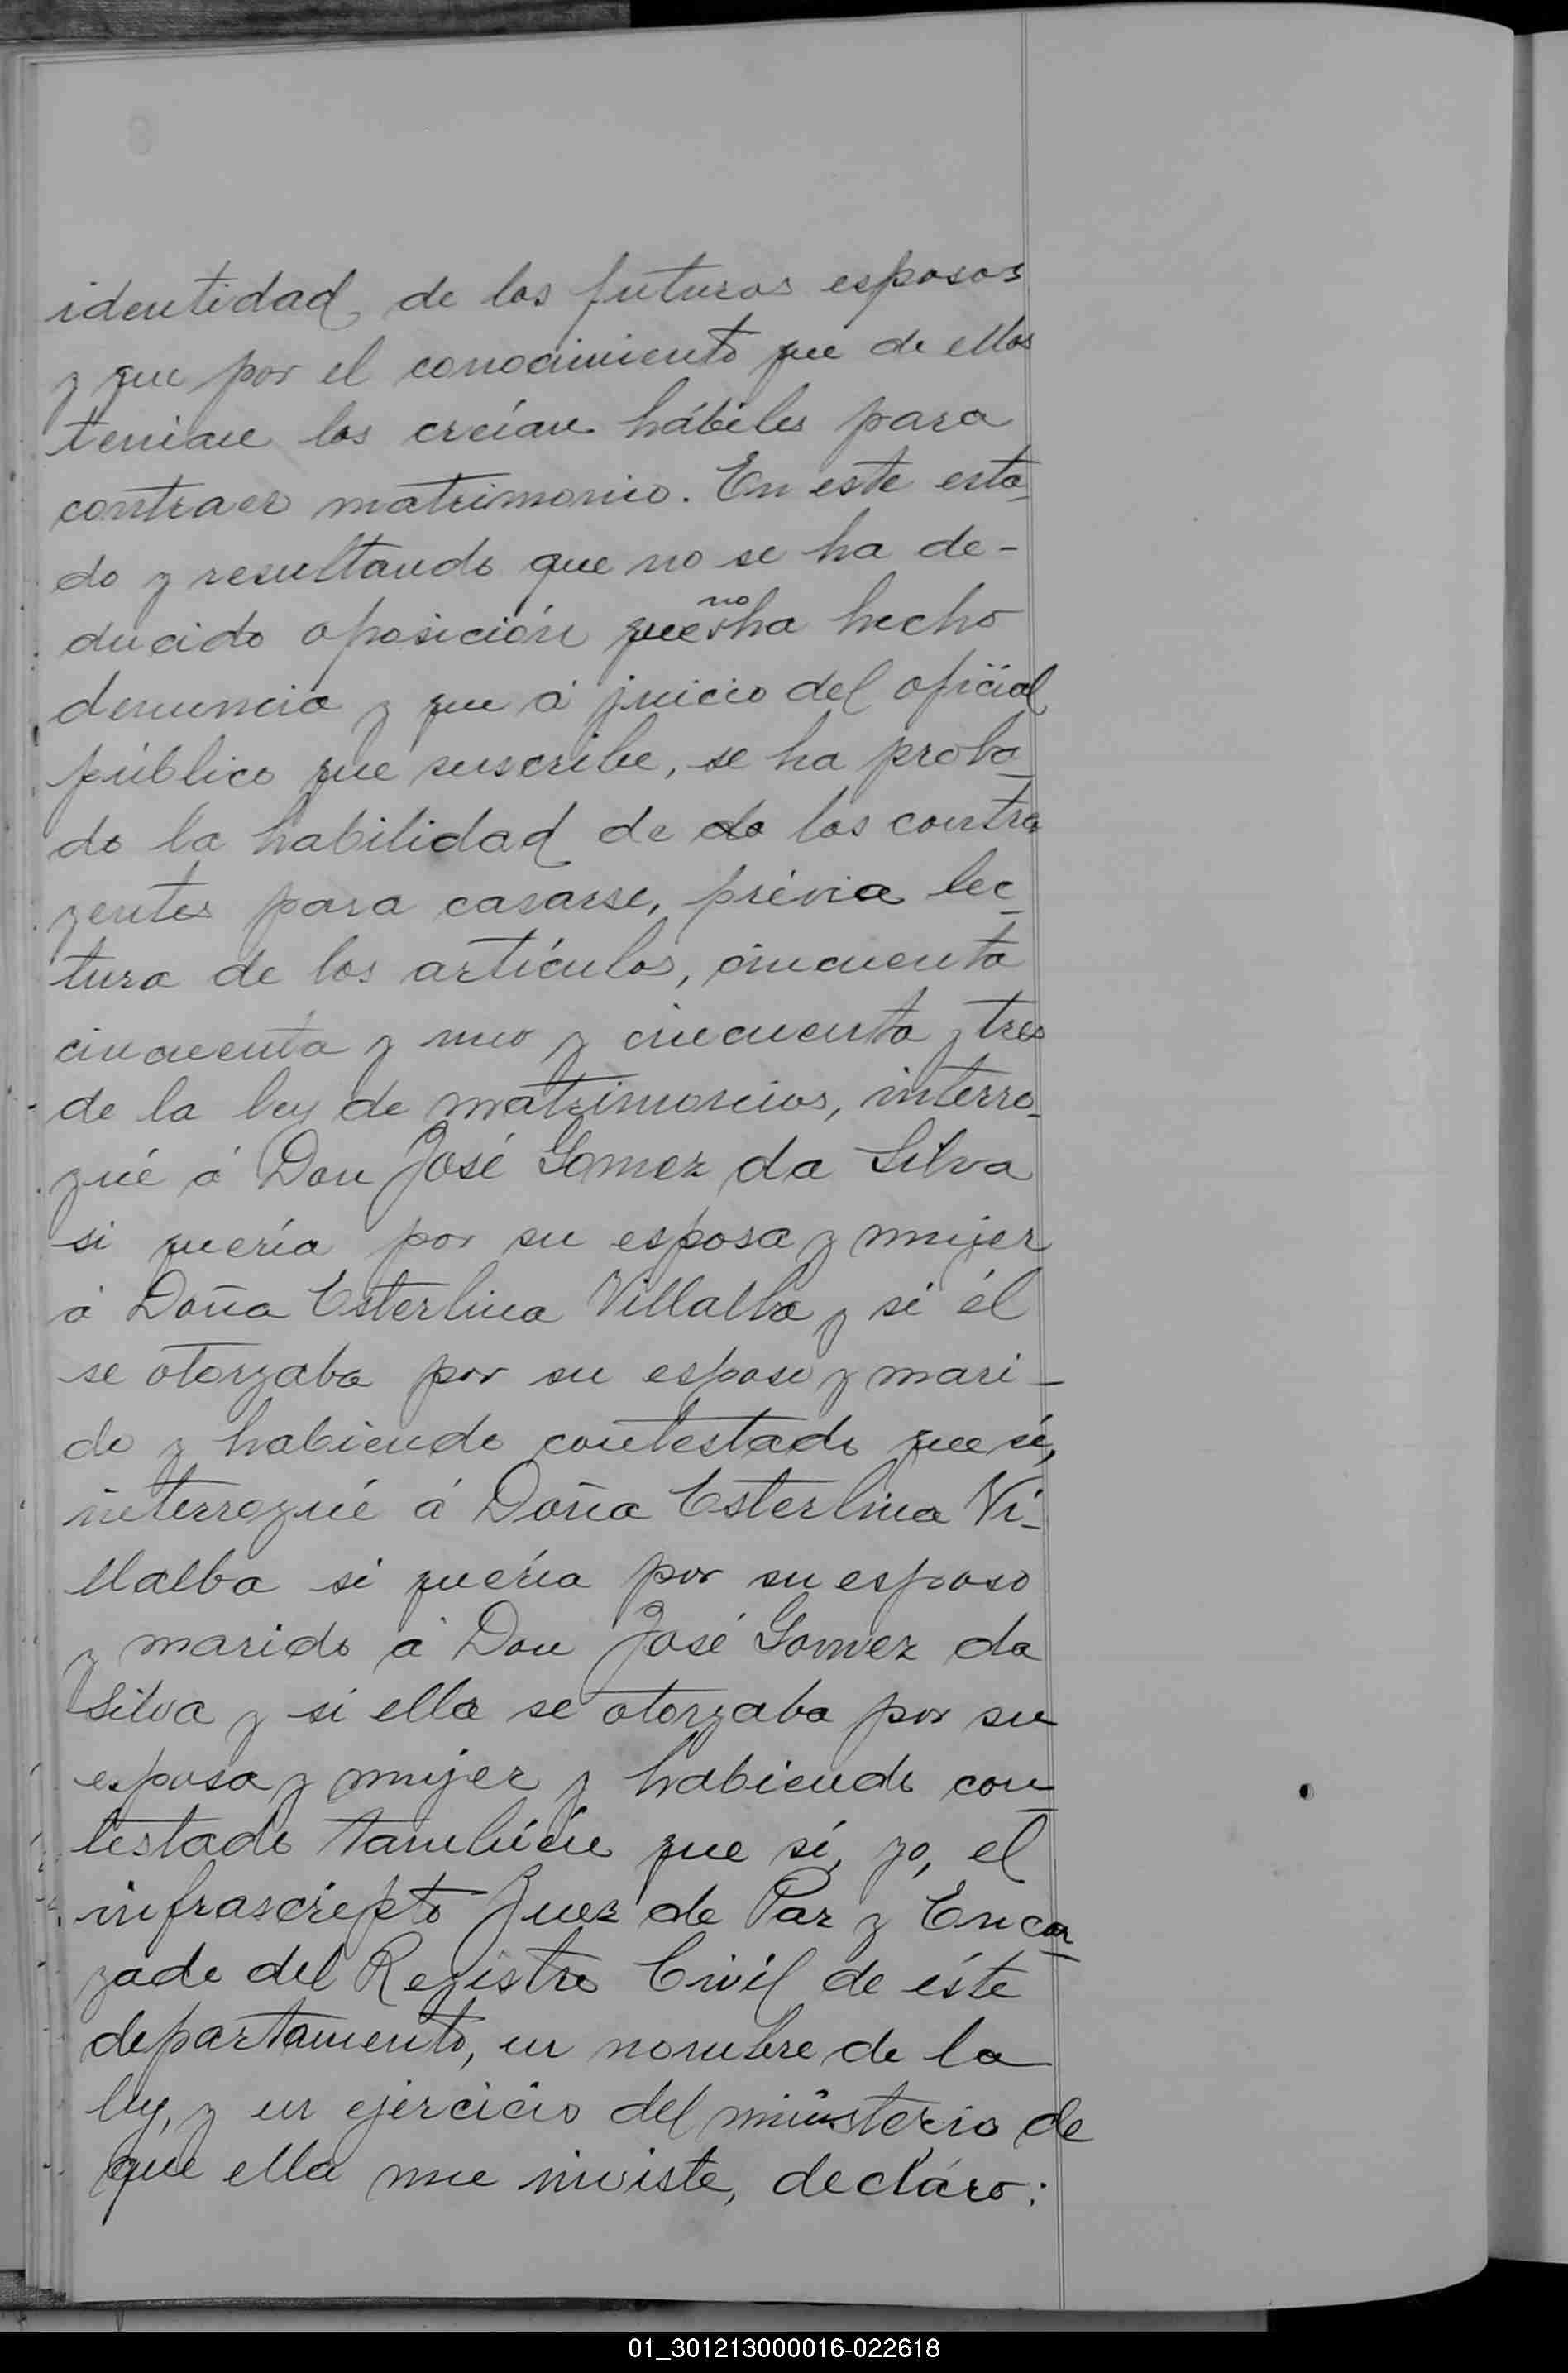 identidad de los futuros esposos
y que por el conocimiento que de ellos
tenian los creían hábiles para
contraer matrimonio. En este esta-
do y resultando que no se ha de-
ducido oposición que no ha hecho
denuncia y que á juicio del oficial
público que suscribe, se ha proba-
do la habilidad de do los contra
yentes para casarse, prévia lec-
tura de los artículos, cincuenta
cincuenta y uno y cincuenta y tres
de la ley de matrimonios, interro-
gué á Don José Gomez da Silva
si quería por su esposa y mujer
á Doña Esterlina Villalba y si él
se otorgaba por su esposo y mari-
do y habiendo contestado que sí,
interrogué á Doña Esterlina Vi-
llalba si quería por su esposo
y marido á Don José Gomez da
Silva y si ella se otorgaba por su
esposa y mujer y habiendo con
testado también que sí, yo, el
infrascripto Juez de Paz y Encar-
gado del Registro Civil de éste
departamento, en nombre de la
ley, y en ejercicio del ministerio de
que ella me inviste, decláro:
01_301213000016-022618